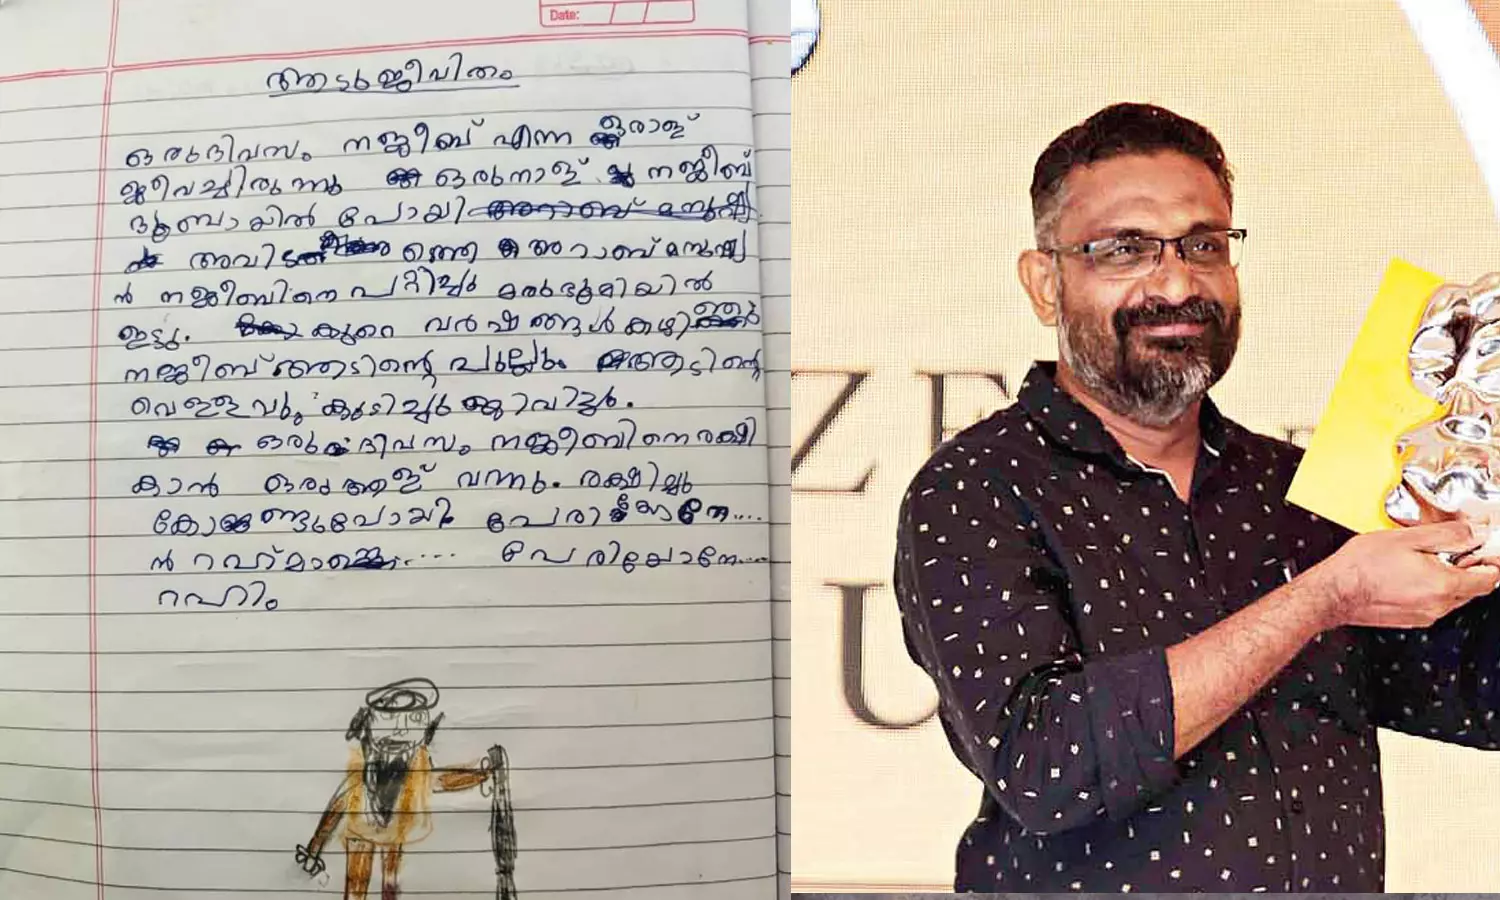 Date:
ആടുജീവിതം
ഒരുദിവസം നജീബ് എന്ന ഒരാള്
ജീവച്ചിരുന്നു ഒരുനാള് നജീബ്
ദുബായിൽ പോയി അറാബ് മനുഷ്യ
അവിടത്തെ അറാബ് മനുഷ്യ
ൻ നജീബിനെ പറ്റിച്ചു മരുഭൂമിയിൽ
ഇട്ടു. കുറെ വർഷങ്ങൾ കഴിഞ്ഞു
നജീബ് ആടിന്റെ പുല്ലും ആടിന്റെ
വെള്ളവും കുടിച്ചു ജീവിച്ചു.
ഒരു ദിവസം നജീബിനെ രക്ഷി
കാൻ ഒരു ആള് വന്നു. രക്ഷിച്ചു
കോണ്ടുപോയി പേരിയോനേ....
ൻ റഹ്മാനേ..... പേരിയോനേ....
റഹിം
ZE
U